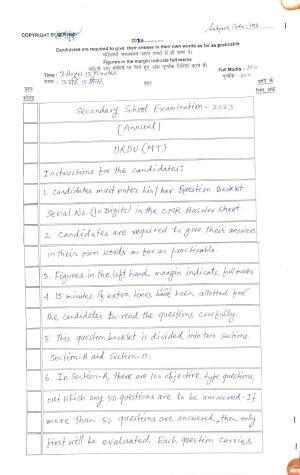 Subject Code: 103
COPYRIGHT RESERVED
Candidates are required to give their answer in their own words as far as practicable
परीक्षार्थी यथासंभव अपने शब्दों में ही उत्तर दें।
Figures in the margin indicate full marks
Time : 3 Hours 15 Minutes
Full Marks - 100
समय : 3 घंटे 15 मिनट
पूर्णांक - 100
Secondary School Examination - 2023
(Annual)
URDU (MT)
Instructions for the candidates:
1. Candidates must enter his/her Question Booklet
Serial No. (10 Digits) in the OMR Answer Sheet.
2. Candidates are required to give their answers
in their own words as far as practicable.
3. Figures in the left hand margin indicate full marks
4. 15 minutes of extra times have been allotted for
the candidates to read the questions carefully.
5. This question booklet is divided into two sections
Section-A and Section-B.
6. In Section-A, there are 100 objective type questions,
out which any 50 questions are to be answered. If
more than 50 questions are answered, then only
first will be evaluated. Each question carries